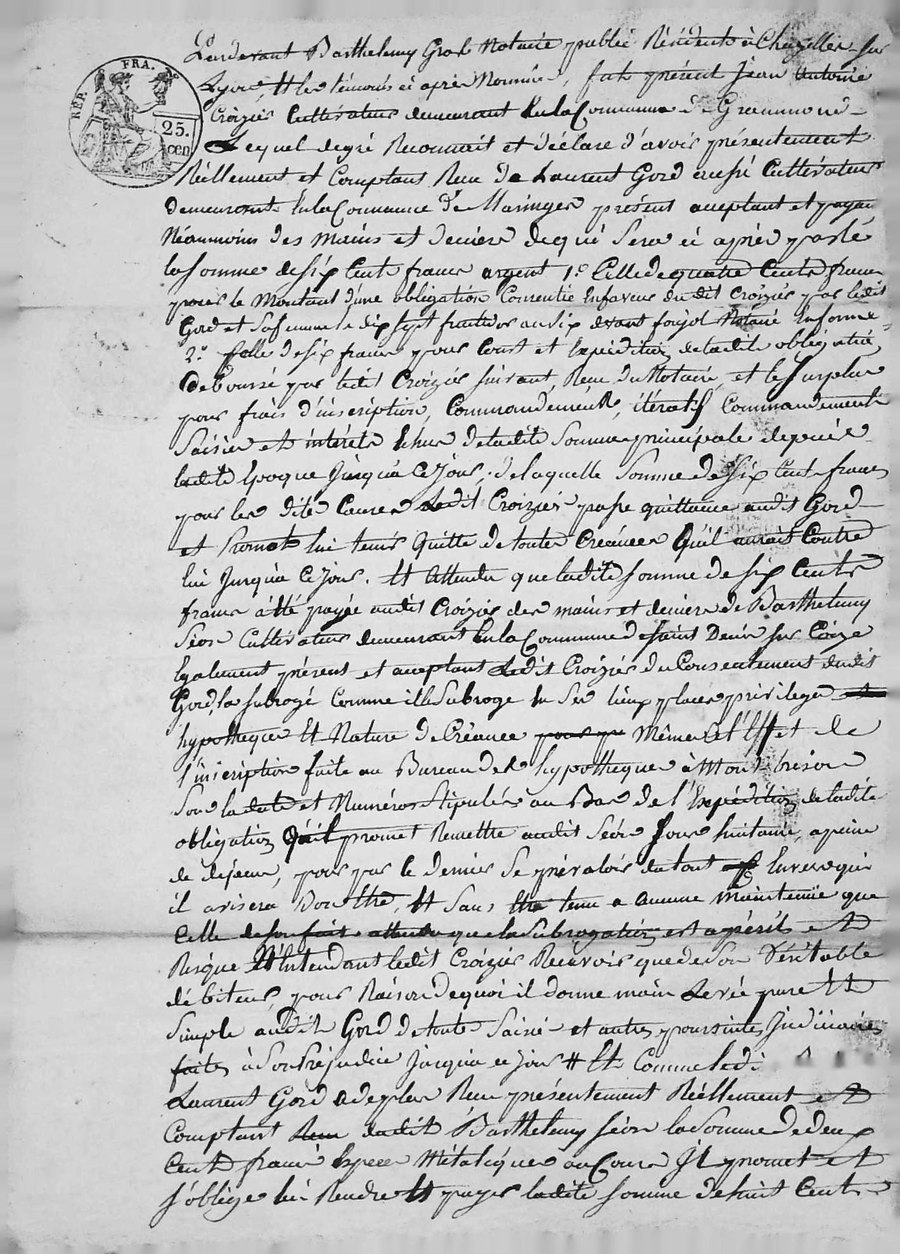 RÉP. FRA.
25.
cen
Pardevant Barthelemy Grol Notaire public Résident à Chazelles sur
Lyon, Et les témoins ci après Nommés, fut présent Jean Antoine
Croizier Cultivateur demeurant En la Commune de Grammond
Lequel de gré Reconnait et déclare d'avoir présentement
Réellement et Comptant Reçu de Laurent Gord aussi Cultivateur
demeurant En la Commune de Maringes présent acceptant et payant
Néanmoins des mains et deniers de qui Sera ci après parlé
la somme de Six Cent francs argent 1º Celle de quatre Cents francs
pour le Montant d'une obligation Consentie En faveur du dit Croizier par ledit
Gord et Sa femme le dix Sept fructidor an Six devant Notaire En forme
2º Celle de six francs pour Cout et Expédition de ladite obligation
déboursé par ledit Croizier suivant Reçu du Notaire, et le Surplus
pour frais d'inscription, Commandement, itératif Commandement
Saisie et intérêts Echus de ladite Somme principale depuis
ladite Epoque Jusqu'à Ce Jour, de laquelle Somme de Six Cent francs
pour les dites Causes Ledit Croizier passe quittance audit Gord
et Promet lui tenir Quitte de toutes Créances Qu'il aurait Contre
lui Jusqu'à Ce Jour. Et Attendu que ladite somme de six Cents
francs a été payée audit Croizier des mains et deniers de Barthelemy
Séon Cultivateur demeurant En la Commune de Saint Denis sur Coize
Egalement présent et acceptant Ledit Croizier du Consentement dudit
Gord, l'a subrogé Comme il le Subroge En Ses lieu, place, privilege et
hypotheque Et Nature de Créance pour que Même et l'Effet de
l'inscription faite au Bureau des hypotheques à Montbrison
Sous la date et Numéros Stipulés au Bas de l'Expédition de ladite
obligation Qu'il promet Remettre audit Séon Jour huitaine, a peine
de dépens, pour par le dernier Se prévaloir du tout Envers qui
il avisera Bon Etre, Et Sans Etre tenu a aucune maintenue que
Celle de Son fait attendu que la Subrogation est a périls et
Risque N'Entendant ledit Croizier Recevoir que de Son Véritable
débiteur, pour Raison de quoi il donne main Levée pure Et
Simple audit Gord de toute Saisie et autres poursuites Judiciaires
faites à Son Préjudice Jusqu'à ce Jour # Et Comme ledi
Laurent Gord a de plus Reçu présentement Réellement et
Comptant Reçu dudit Barthelemy Séon la Somme de deux
Cent francs Espece Métalique au Cours Il promet et
s'oblige lui Rendre Et payer ladite Somme de huit Cent